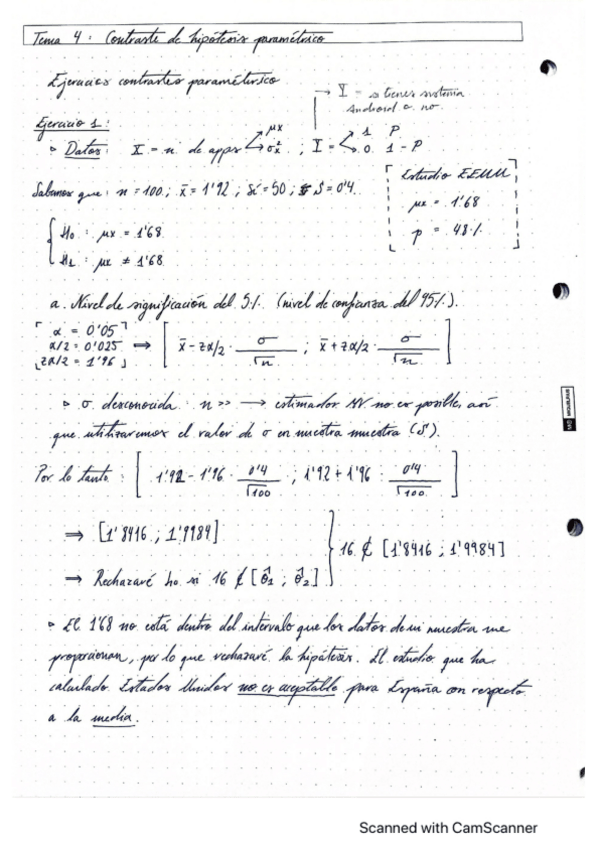 Tema 4 : Contraste de hipótesis paramétrico
Ejercicios contrastes paramétrico
→ Y = si tienes sistema
Android o no.
Ejercicio 1:
▹ Datos: X = nº de apps < μx σx² ; Y = < 1 P 0 1-P
Sabemos que: n = 100 ; x̄ = 1'92 ; = 50 ; S = 0'4.
Estudio EEUU
μx = 1'68
p = 48%
H₀ : μx = 1'68
H₁ : μx ≠ 1'68
a. Nivel de significación del 5% (nivel de confianza del 95%).
α = 0'05
α/2 = 0'025
zα/2 = 1'96
⟹ [ x̄ - zα/2 · σ/√n ; x̄ + zα/2 · σ/√n ]
▹ σ desconocida : n >> → estimador MV no es posible, así
que utilizaremos el valor de σ en nuestra muestra (S).
Por lo tanto : [ 1'92 - 1'96 · 0'4/√100 ; 1'92 + 1'96 · 0'4/√100 ]
⟹ [1'8416 ; 1'9984]
⟹ Rechazaré ho si 16 ∉ [θ̂1 ; θ̂2]
16 ∉ [1'8416 ; 1'9984]
▹ El 1'68 no está dentro del intervalo que los datos de mi muestra me
proporcionan, por lo que rechazaré la hipótesis. El estudio que ha
calculado Estados Unidos no es aceptable para España con respecto
a la media.
Scanned with CamScanner